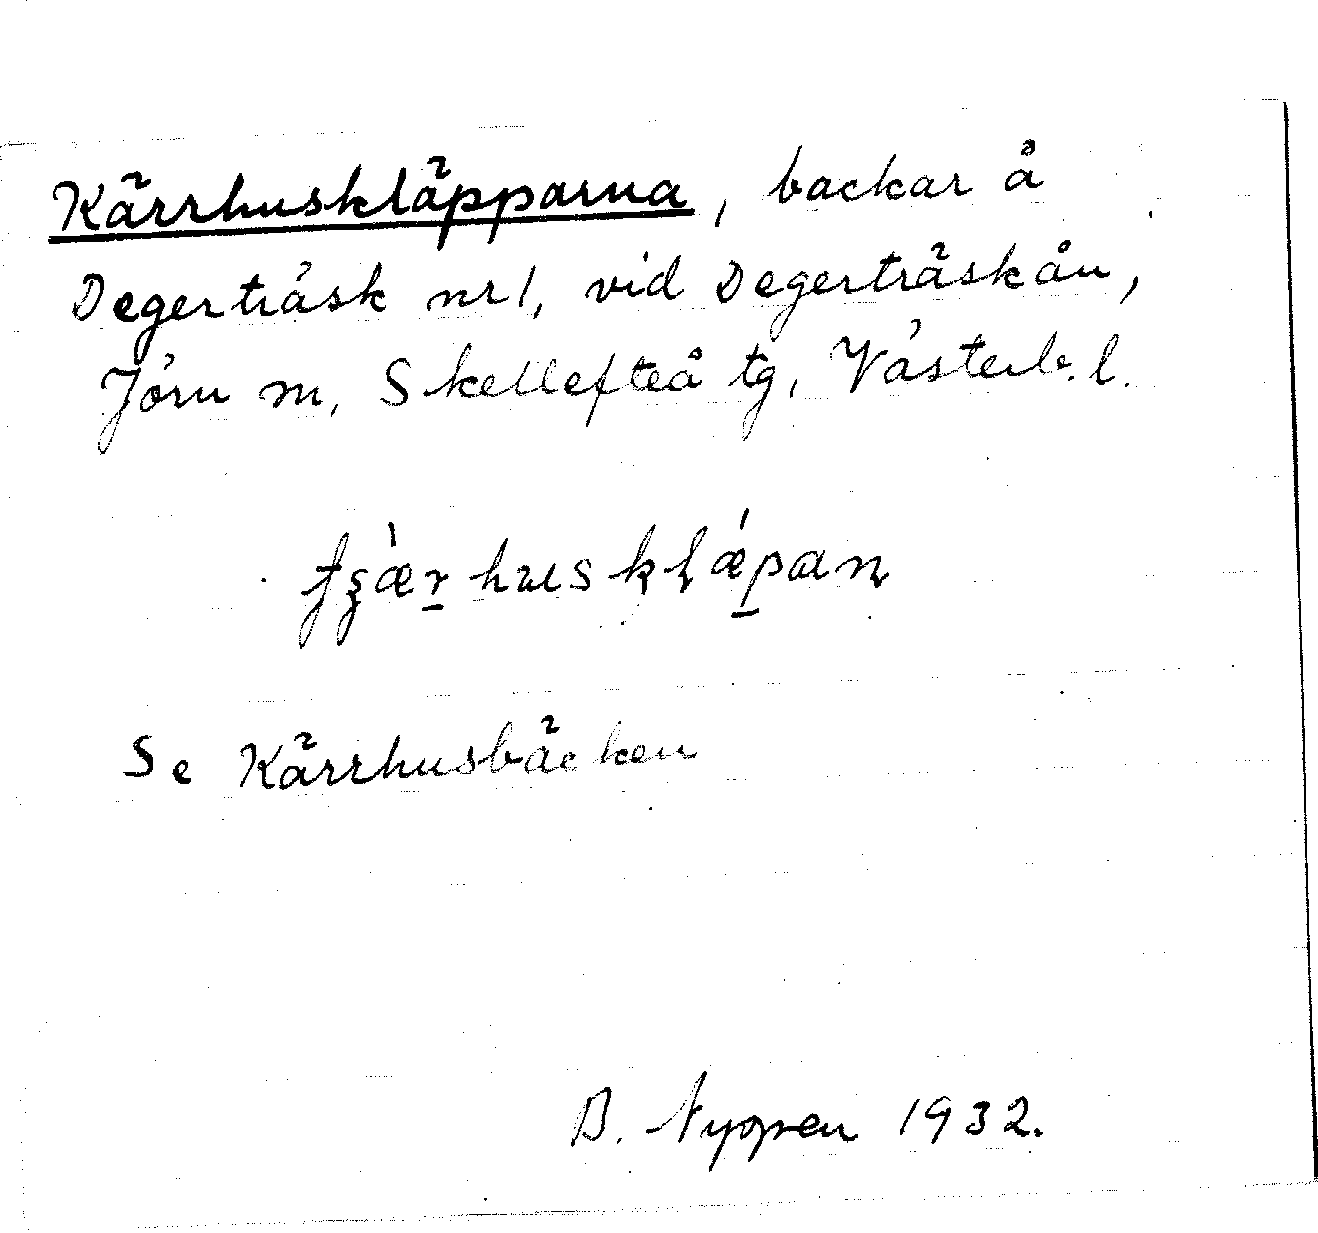 Kärrhuskläpparna, backar å
Degerträsk nr 1, vid Degerträskån,
Jörn sn, Skellefteå tg, Västerb. l.
Se Kärrhusbäcken
B. Nygren 1932.